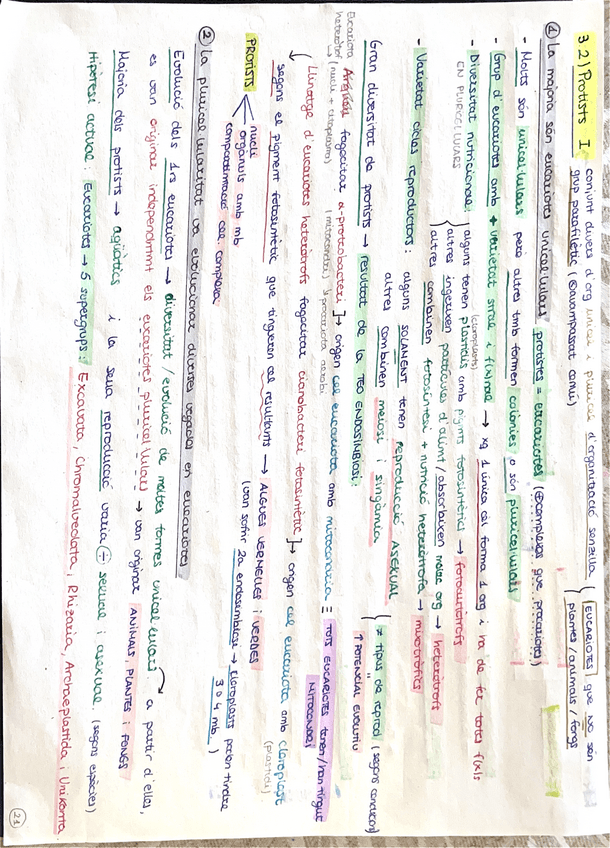 3.2) Protists I conjunt divers d'org unicel i pluricel d'organització senzilla { EUCARIOTES que NO són
grup parafilètic (@avantpassat comú) plantes / animals / fongs
① La majoria són eucariotes unicel·lulars protistes = eucariotes (⊕complexes que procariotes)
- Molts són unicel·lulars però altres tmb formen colònies o són pluricel·lulars
- Grup d'eucariotes amb + varietat stral i f(x)nal → xq 1 única cel forma 1 org i ha de fer totes f(x)s
- Diversitat nutricional: { alguns tenen plastidis amb pigments fotosintètics → fotoautòtrofs
(cloroplasts)
EN PLURICEL·LULARS altres ingereixen partícules d'alimt / absorbeixen matèr org → heteròtrofs
altres combinen fotosíntesi + nutrició heteròtrofa → mixotròfics
- Varietat cicles reproductors: alguns SOLAMENT tenen reproducció ASEXUAL { ≠ tipus de reprod (segons condicions)
altres combinen meiosi i singàmia ↑ POTENCIAL EVOLUTIU
Gran diversitat de protists → resultat de la TEO ENDOSIMBIOSI:
Eucariota
heteròtrof Arqueu fagocitar α-proteobacteri ] → origen cel eucariota amb mitocondria ≡ TOTS EUCARIOTES tenen/han tingut
(nucli + citoplasma) (mitocondri) procariota aerobi MITOCONDRI
Llinatge d'eucariotes heteròtrofs fagocitar cianobacteri fotosintètic ] → origen cel eucariota amb cloroplast
(plastidi)
segons el pigment fotosintètic que tingueren cel resultants → ALGUES VERMELLES i VERDES
(van sofrir 2a endosimbiosi → cloroplasts poden tindre
3 o 4 mb)
PROTISTS nucli
orgànuls amb mb
compartimentació cel. complexa
② La pluricel·lularitat va evolucionar diverses vegades en eucariotes
Evolució dels 1rs eucariotes → diversitat / evolució de moltes formes unicel·lulars → a partir d'elles,
es van originar independntmt els eucariotes pluricel·lulars → van originar ANIMALS, PLANTES i FONGS
Majoria dels protists → aquàtics i la seua reproducció varia ÷ sexual i asexual (segons espècies)
Hipòtesi actual: Eucariotes → 5 supergrups: Excavata, Chromalveolata, Rhizaria, Archaeplastida i Unikonta
21